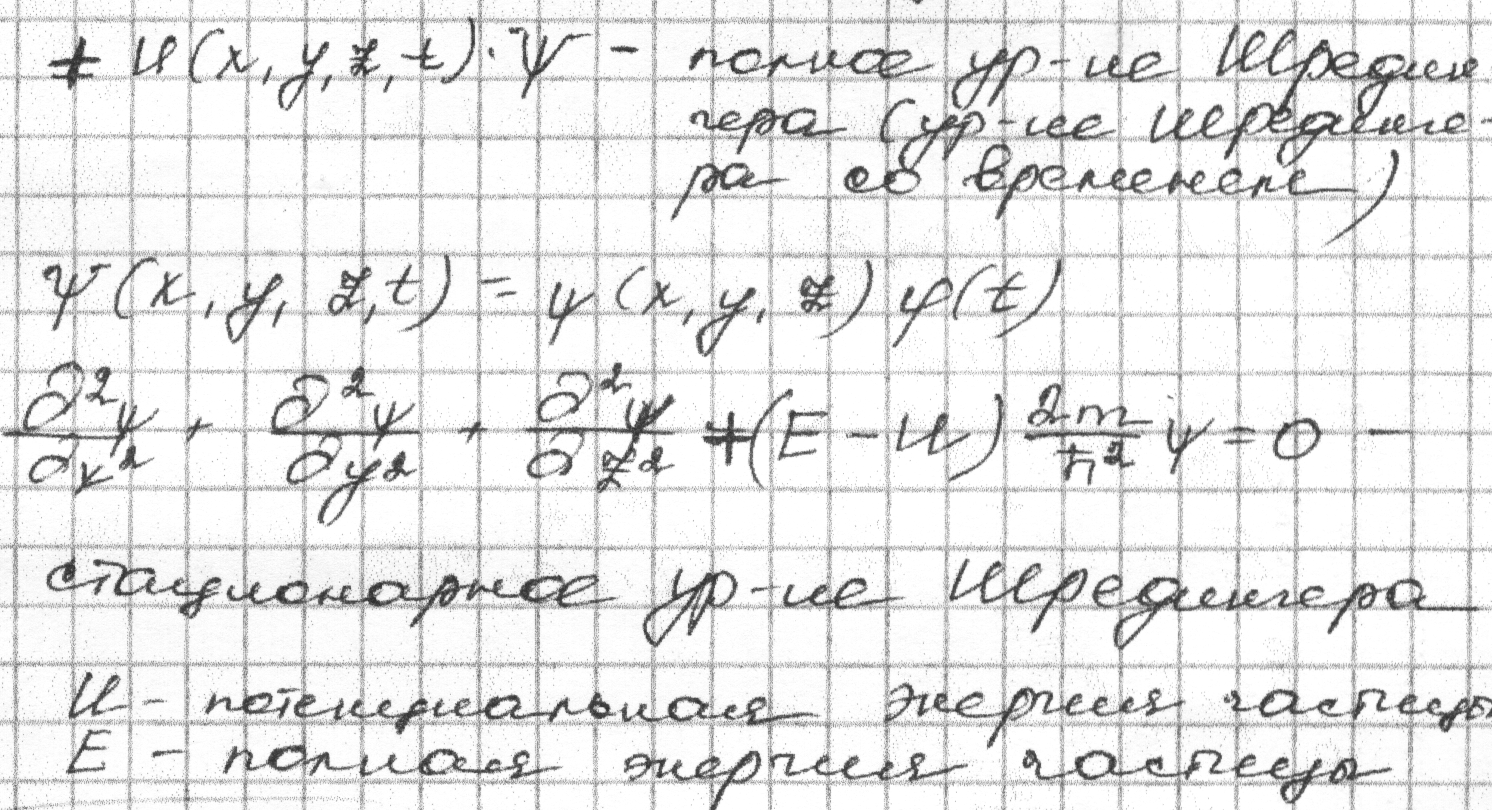 + U(x, y, z, t)·Ψ – полное ур-ие Шредин
гера (ур-ие Шрединге-
ра со временем)
Ψ(x, y, z, t) = ψ(x, y, z) φ(t)
∂²ψ/∂x² + ∂²ψ/∂y² + ∂²ψ/∂z² + (E – U) 2m/ħ² ψ = 0 –
стационарное ур-ие Шредингера
U – потенциальная энергия частицы
E – полная энергия частицы